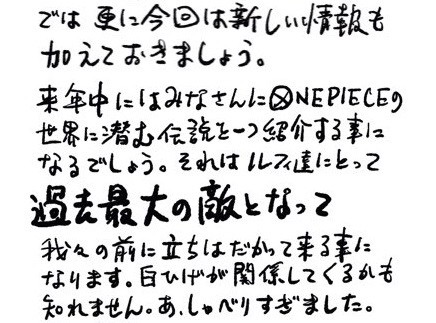 では 更に今回は新しい情報も
加えておきましょう。
来年中にはみなさんにONEPIECEの
世界に潜む伝説を一つ紹介する事に
なるでしょう。それはルフィ達にとって
過去最大の敵となって
我々の前に立ちはだかって来る事に
なります。白ひげが関係してくるかも
知れません。あ、しゃべりすぎました。